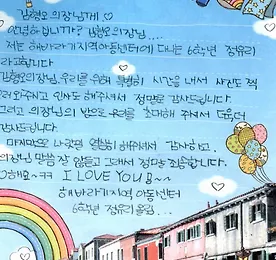 김형오 의장님께 ♡
안녕하십니까? 김형오 의장님....
저는 해바라기지역아동센터에 다니는 6학년 정유리
라고합니다.
김형오의장님, 우리를 위해 특별히 시간을 내서 사진도 찍
어와주시고 인사도 해주셔서 정말로 감사드립니다.
그리고 의장님의 방으로 우리를 초대해 주셔서 더욱더
감사드립니다.
마지막으로 나랏일 열심히 해주셔서 감사하고.
의장님 말씀 잘 않듣고 그래서 정말 죄송합니다.
♡해요~ㅋㅋ I LOVE YOU B~
해바라기지역 아동센터
6학년 정유리 올림...